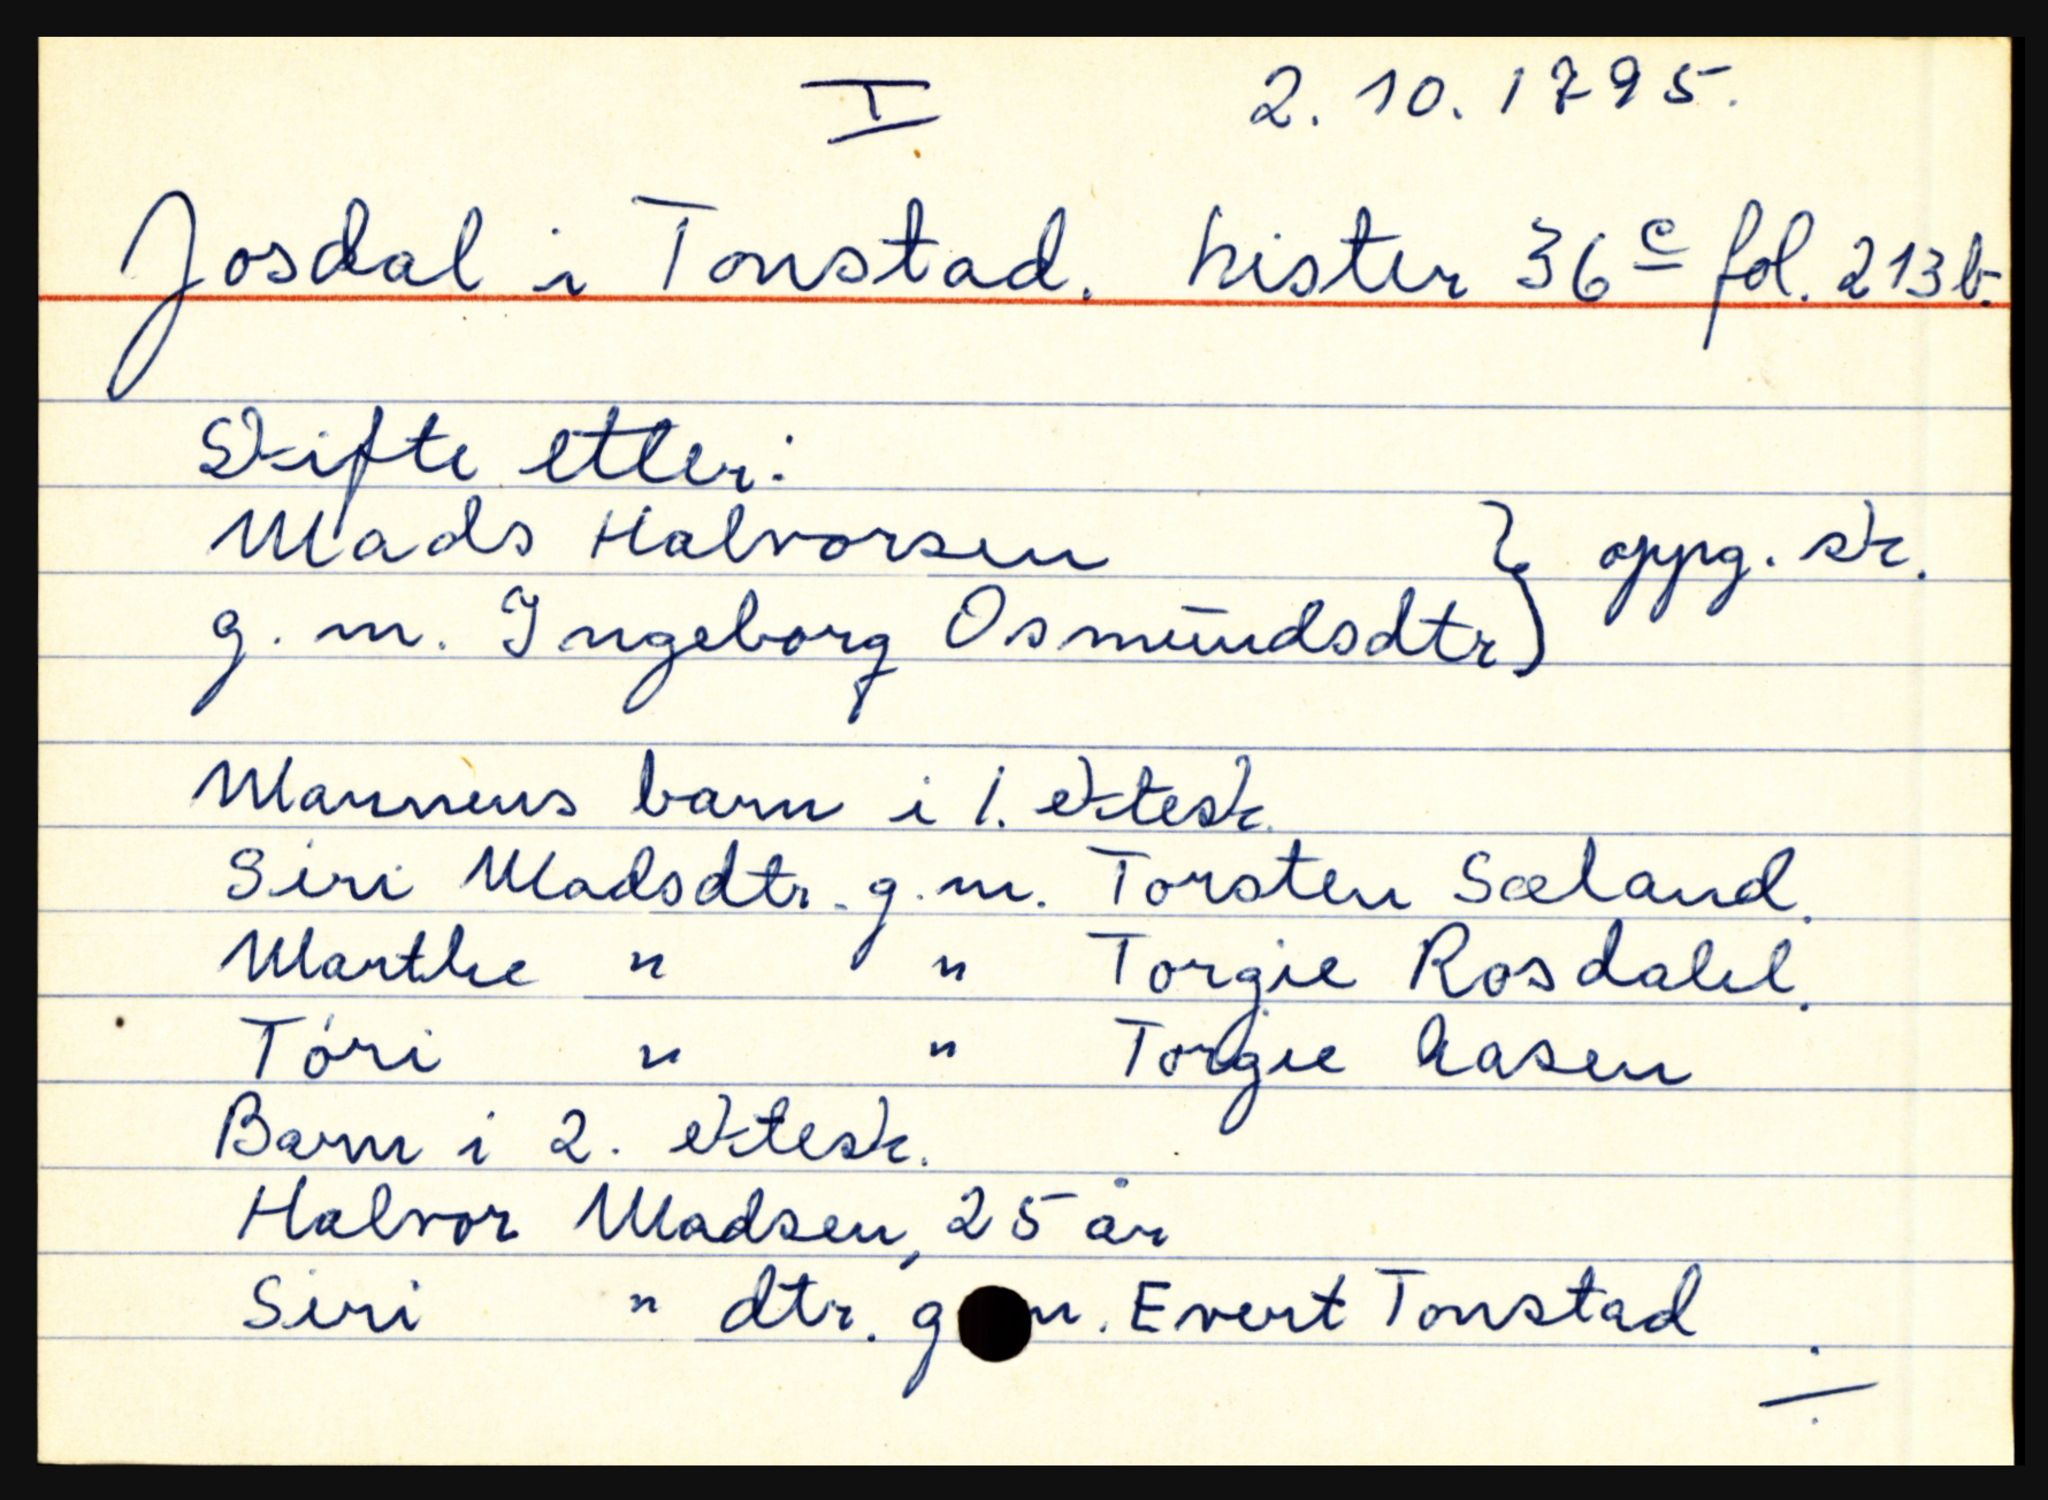 I 2.10.1795.
Josdal i Tonstad. Lister 36c fol. 213b.
Skifte etter:
Mads Halvorsen } oppg. sk.
g.m. Ingeborg Osmundsdtr }
Mannens barn i 1. ektesk.
Siri Madsdtr. g.m. Torsten Sæland.
Marthe " " Torgie Rosdahl.
Tóri " " Torgie Lasen
Barn i 2. ektesk.
Halvor Madsen, 25 år
Siri " dtr. g.m. Evert Tonstad